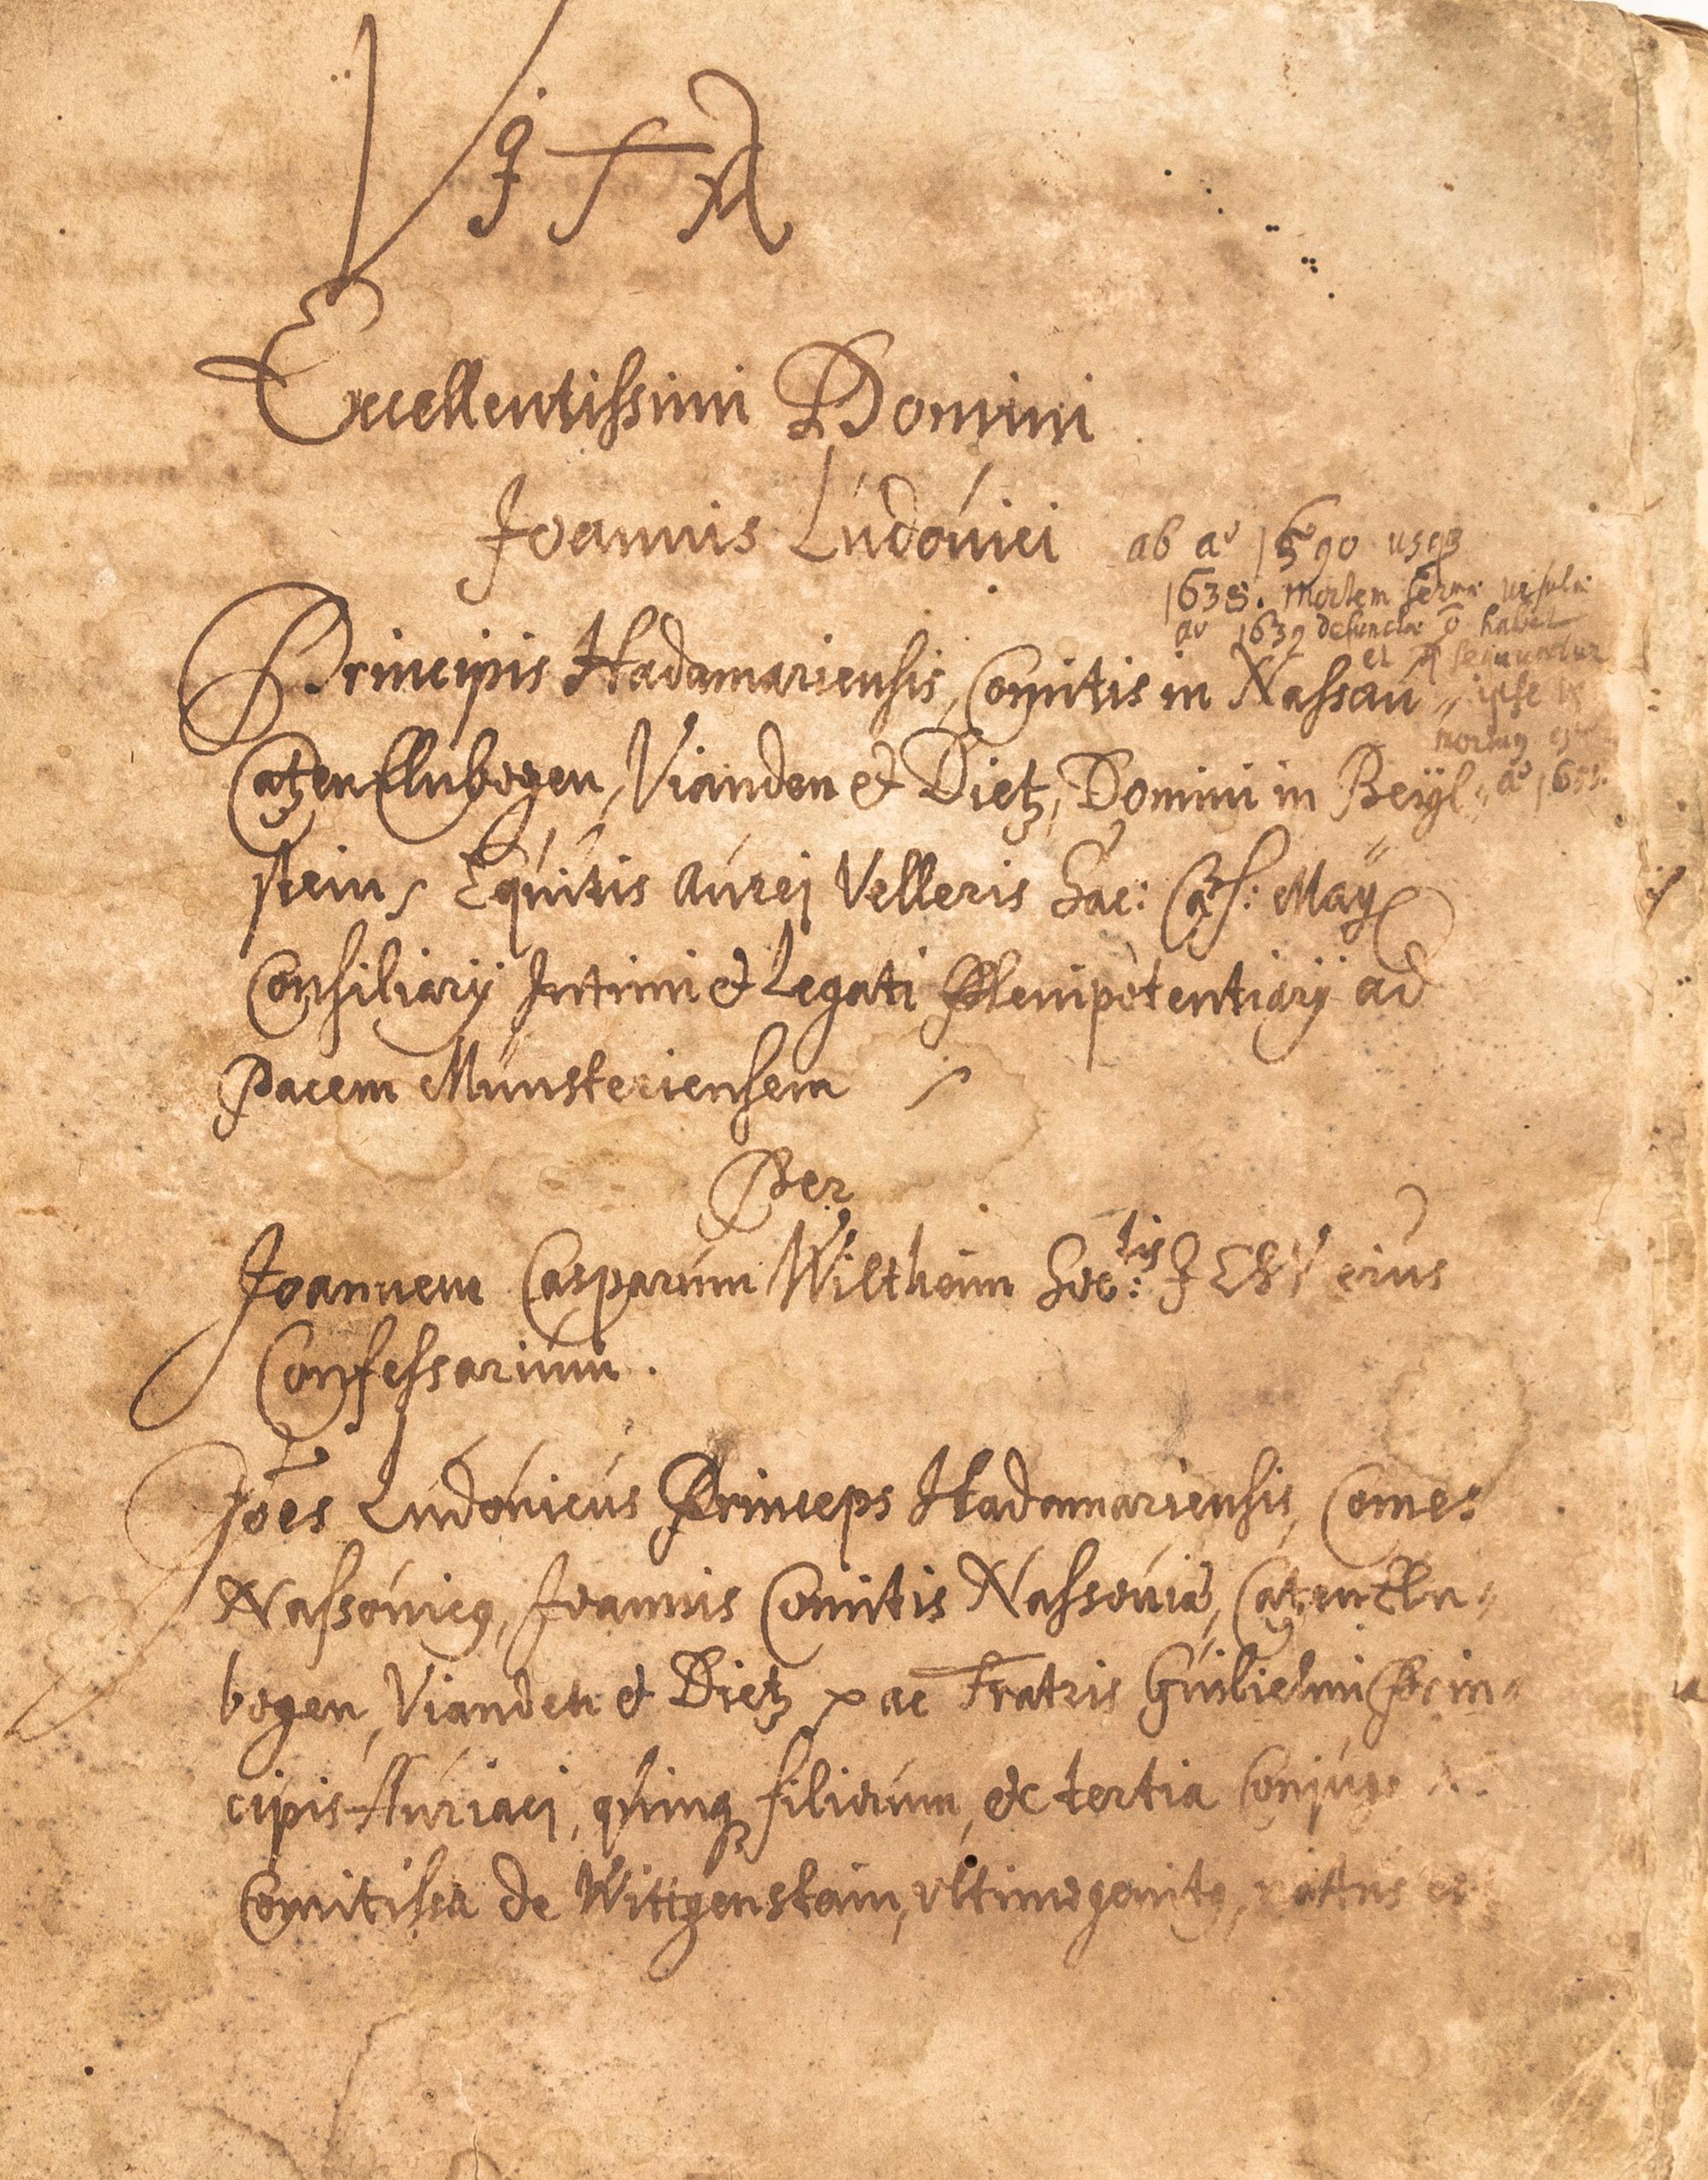 Vita
Excellentissimi Domini
Joannis Ludovici
ab a° 1590 usq3
1638. mortem
a° 1639 defunctæ habet
et sequuntur
ipse
mortuq
a° 165
Principis Hadamariensis, Comitis in Nassau
CatzenEllnbogen, Vianden & Dietz, Domini in Beÿl-
stein, Equitis Aurei Velleris Sac: Cæs: May
Consiliarij Intimi & Legati Plenipotentiarij ad
Pacem Münsteriensem
Per
Joannem Casparum Wiltheim Soc:tis JESV eius
Confessarium.
Joēs Ludovicus Princeps Hadamariensis, Comes
Nassovicq, Joannis Comitis Nassoviæ, CatzenEln-
bogen, Vianden & Dietz ac Fratris Guilielmi Prin-
cipis Auriaci, quinq filiorum, ex tertia Conjuge
Comitissa de Wittgenstain, ultimogenitq, natus